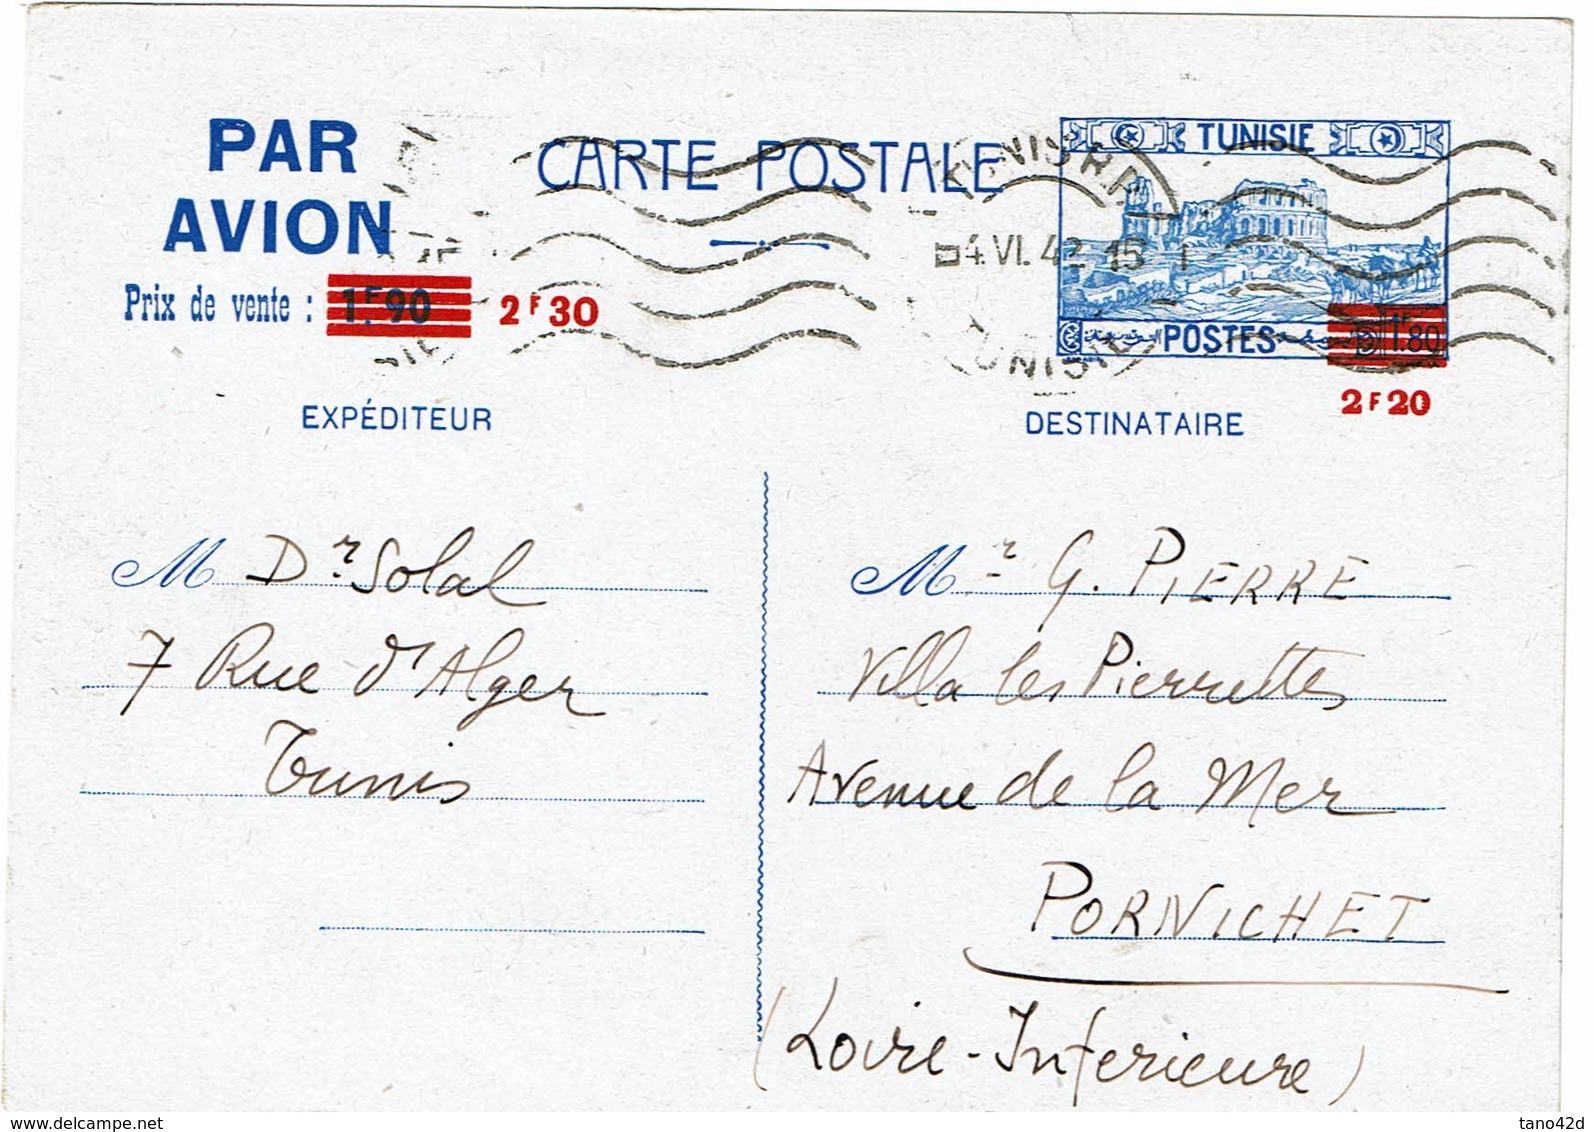 PAR
AVION
Prix de vente : 1F90 2F30
CARTE POSTALE
TUNIS R.P.
-4.VI.42 15
TUNISIE
TUNISIE
POSTES
1F80
2F20
EXPÉDITEUR
M Dr Solal
7 Rue d'Alger
Tunis
DESTINATAIRE
Mr G. PIERRE
Villa les Pierrettes
Avenue de la Mer
PORNICHET
(Loire-Inferieure)
www.delcampe.net
tano42d